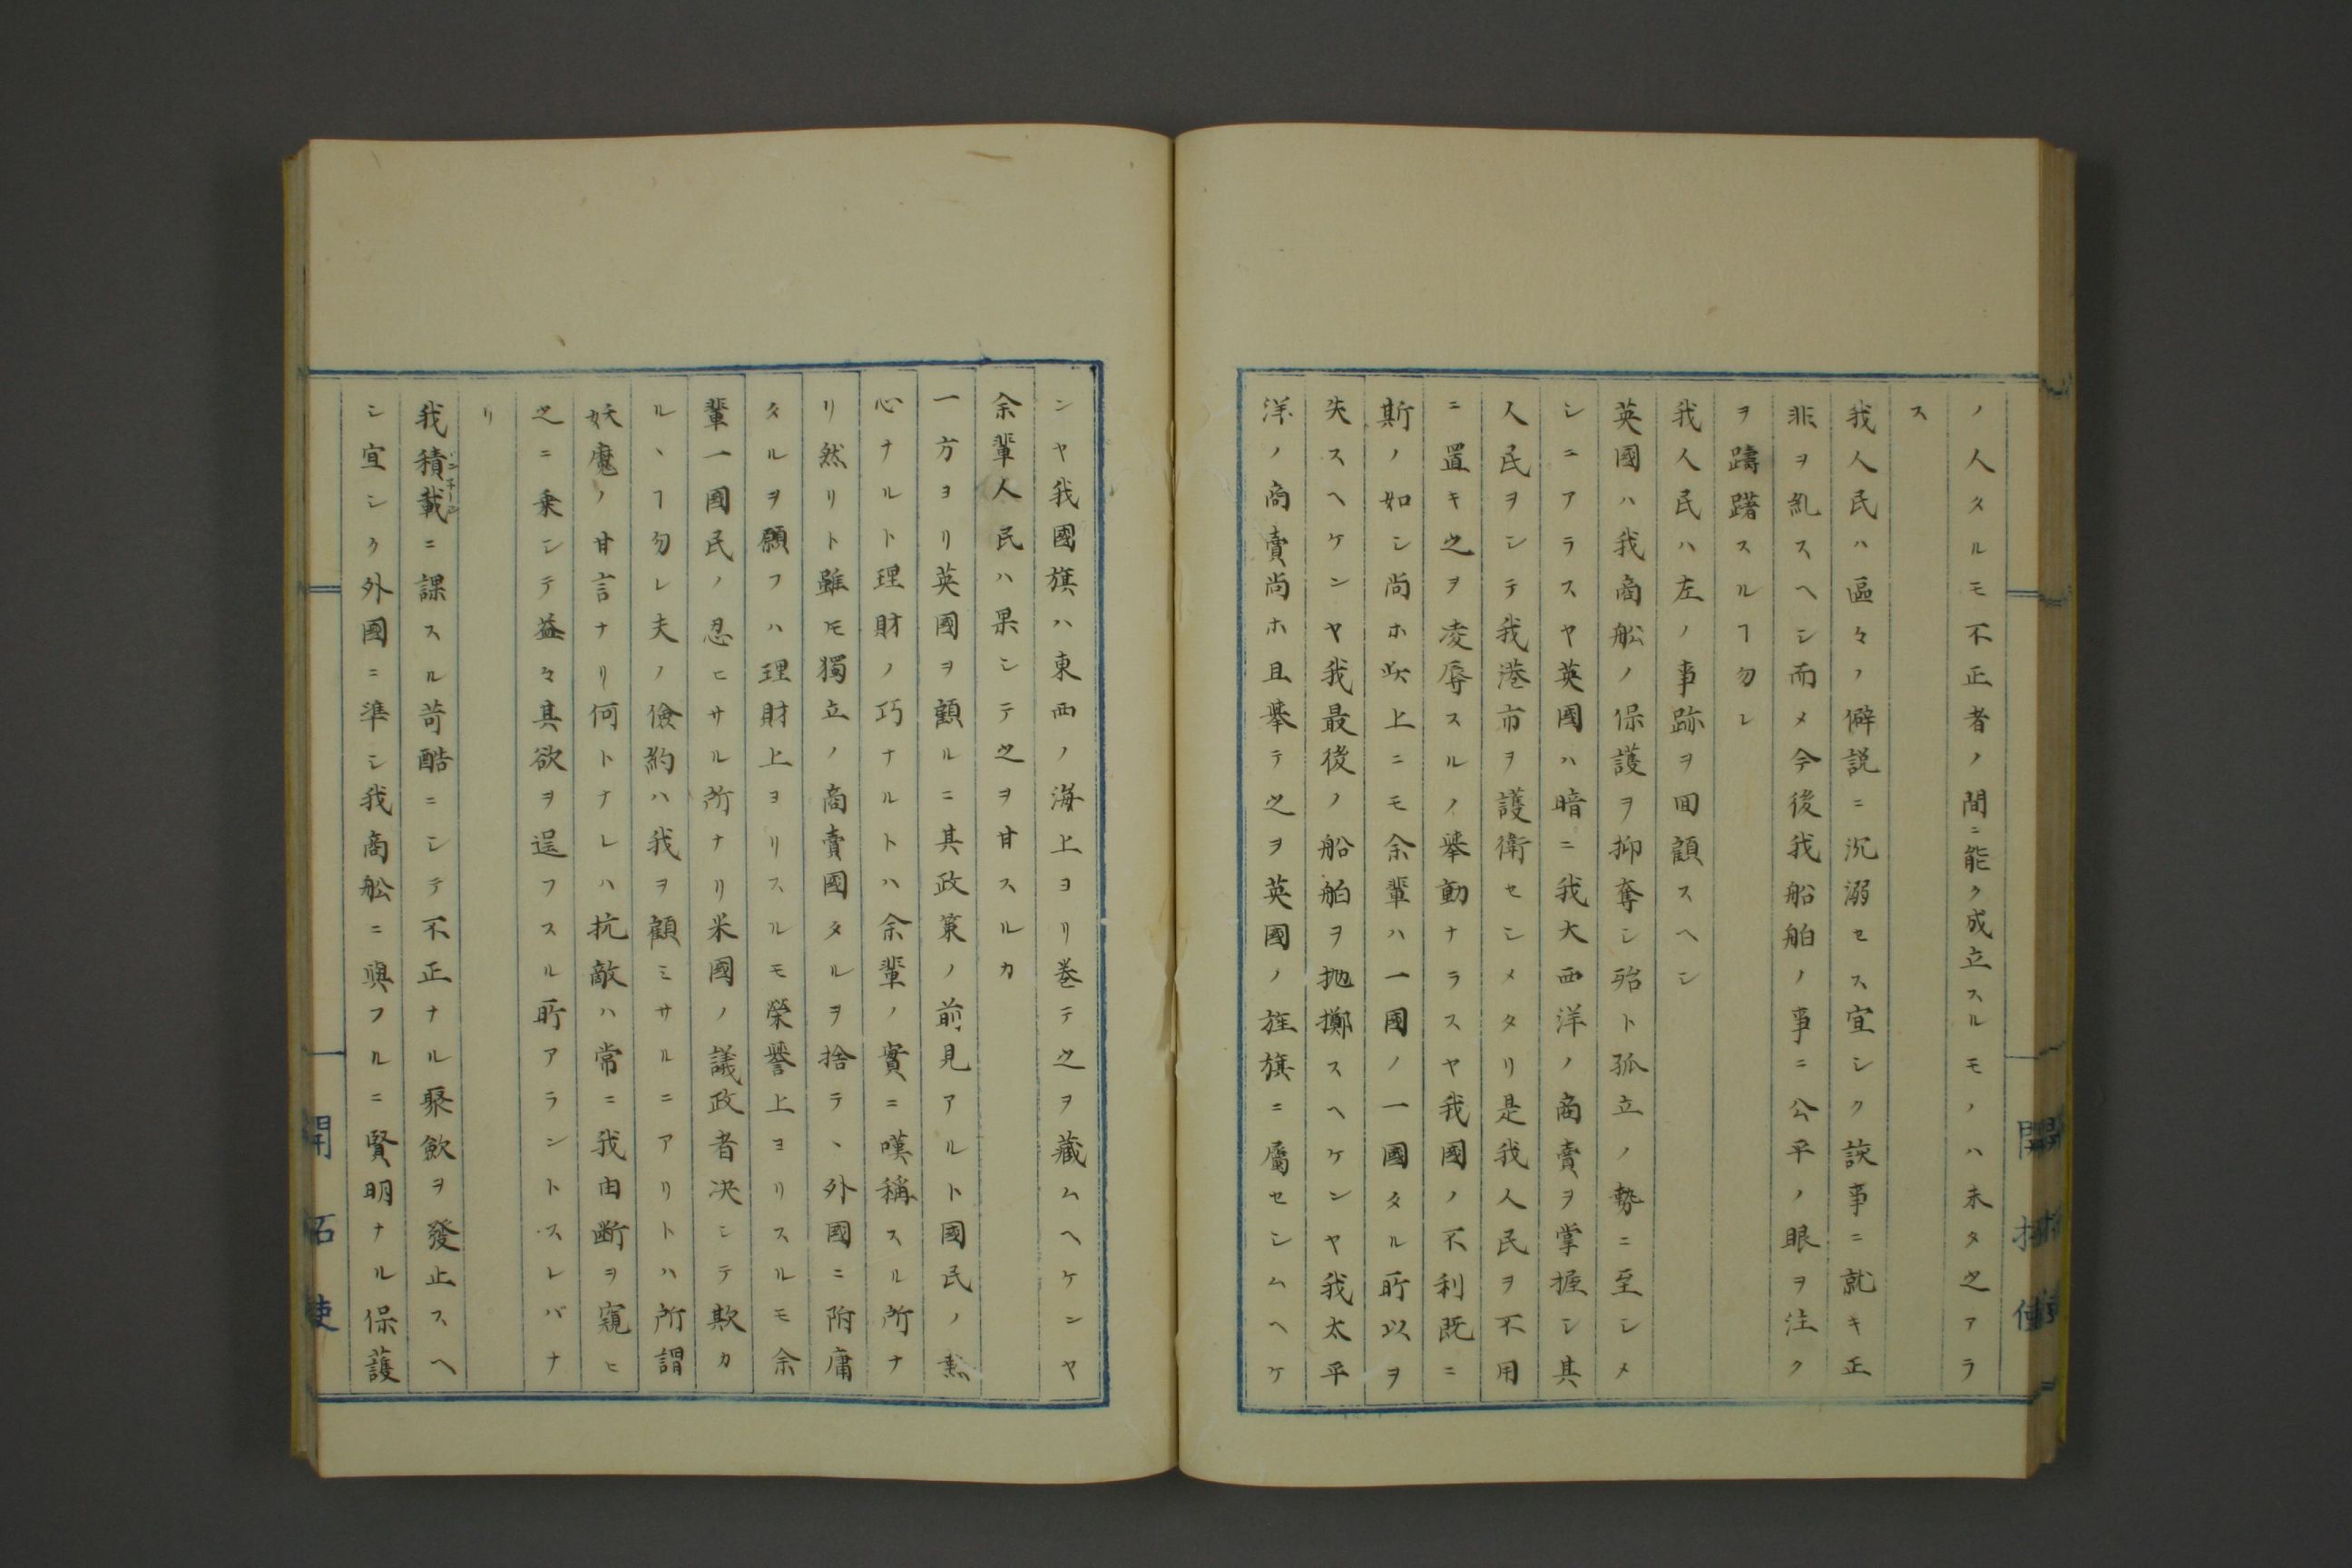 ノ人タルモ不正者ノ間ニ能ク成立スルモノハ未タ之アラ
ス
我人民ハ區々ノ僻説ニ沉溺セス宜シク該事ニ就キ正
非ヲ糺スヘシ而メ今後我船舶ノ事ニ公平ノ眼ヲ注ク
ヲ躊躇スルヿ勿レ
我人民ハ左ノ事跡ヲ回顧スヘシ
英國ハ我商舩ノ保護ヲ抑奪シ殆ト孤立ノ勢ニ至シメ
シニアラスヤ英國ハ暗ニ我大西洋ノ商賣ヲ掌握シ其
人民ヲシテ我港市ヲ護衛セシメタリ是我人民ヲ不用
ニ置キ之ヲ凌辱スルノ擧動ナラスヤ我國ノ不利既ニ
斯ノ如シ尚ホ此上ニモ余輩ハ一國ノ一國タル所以ヲ
失スヘケンヤ我最後ノ船舶ヲ抛擲スヘケンヤ我太平
洋ノ商賣尚ホ且擧テ之ヲ英國ノ旌旗ニ屬セシムヘケ
ンヤ我國旗ハ東西ノ海上ヨリ巻テ之ヲ藏ムヘケンヤ
余輩人民ハ果シテ之ヲ甘スルカ
一方ヨリ英國ヲ顧ルニ其政策ノ前見アルト國民ノ熱
心ナルト理財ノ巧ナルトハ余輩ノ實ニ嘆稱スル所ナ
リ然リト雖モ獨立ノ商賣國タルヲ捨テヽ外國ニ附庸
タルヲ願フハ理財上ヨリスルモ榮譽上ヨリスルモ余
輩一國民ノ忍ヒサル所ナリ米國ノ議政者决シテ欺カ
ルヽヿ勿レ夫ノ儉約ハ我ヲ顧ミサルニアリトハ所謂
妖魔ノ甘言ナリ何トナレハ抗敵ハ常ニ我由断ヲ窺ヒ
之ニ乗シテ益々其欲ヲ逞フスル所アラントスレバナ
リ
我積載ニ課スル苛酷ニシテ不正ナル聚歛ヲ發止スヘ
シ宜シク外國ニ準シ我商舩ニ與フルニ賢明ナル保護
開拓使